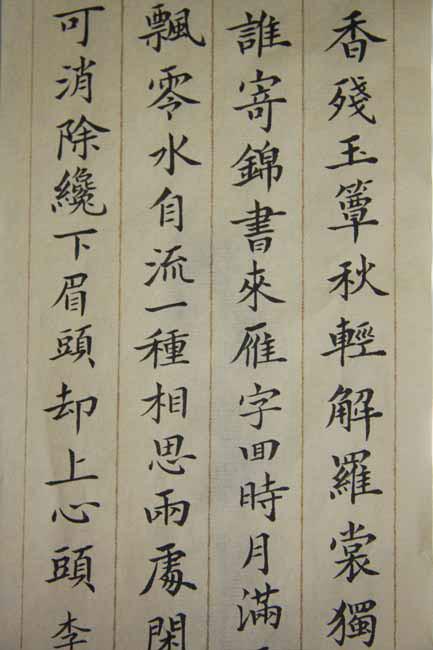 香殘玉簟秋輕解羅裳獨
誰寄錦書來雁字囬時月滿
飄零水自流一種相思兩處閑
可消除纔下眉頭却上心頭李